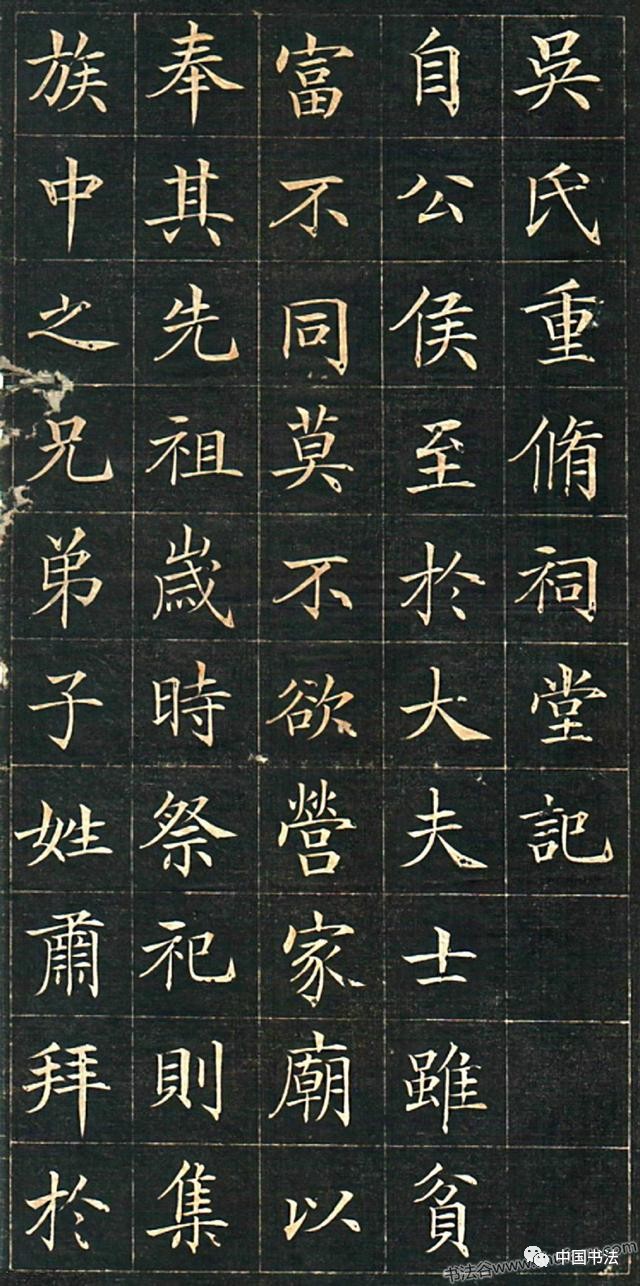 吳氏重脩祠堂記
自公侯至於大夫士雖貧
富不同莫不欲營家廟以
奉其先祖歲時祭祀則集
族中之兄弟子姓肅拜於
中国书法